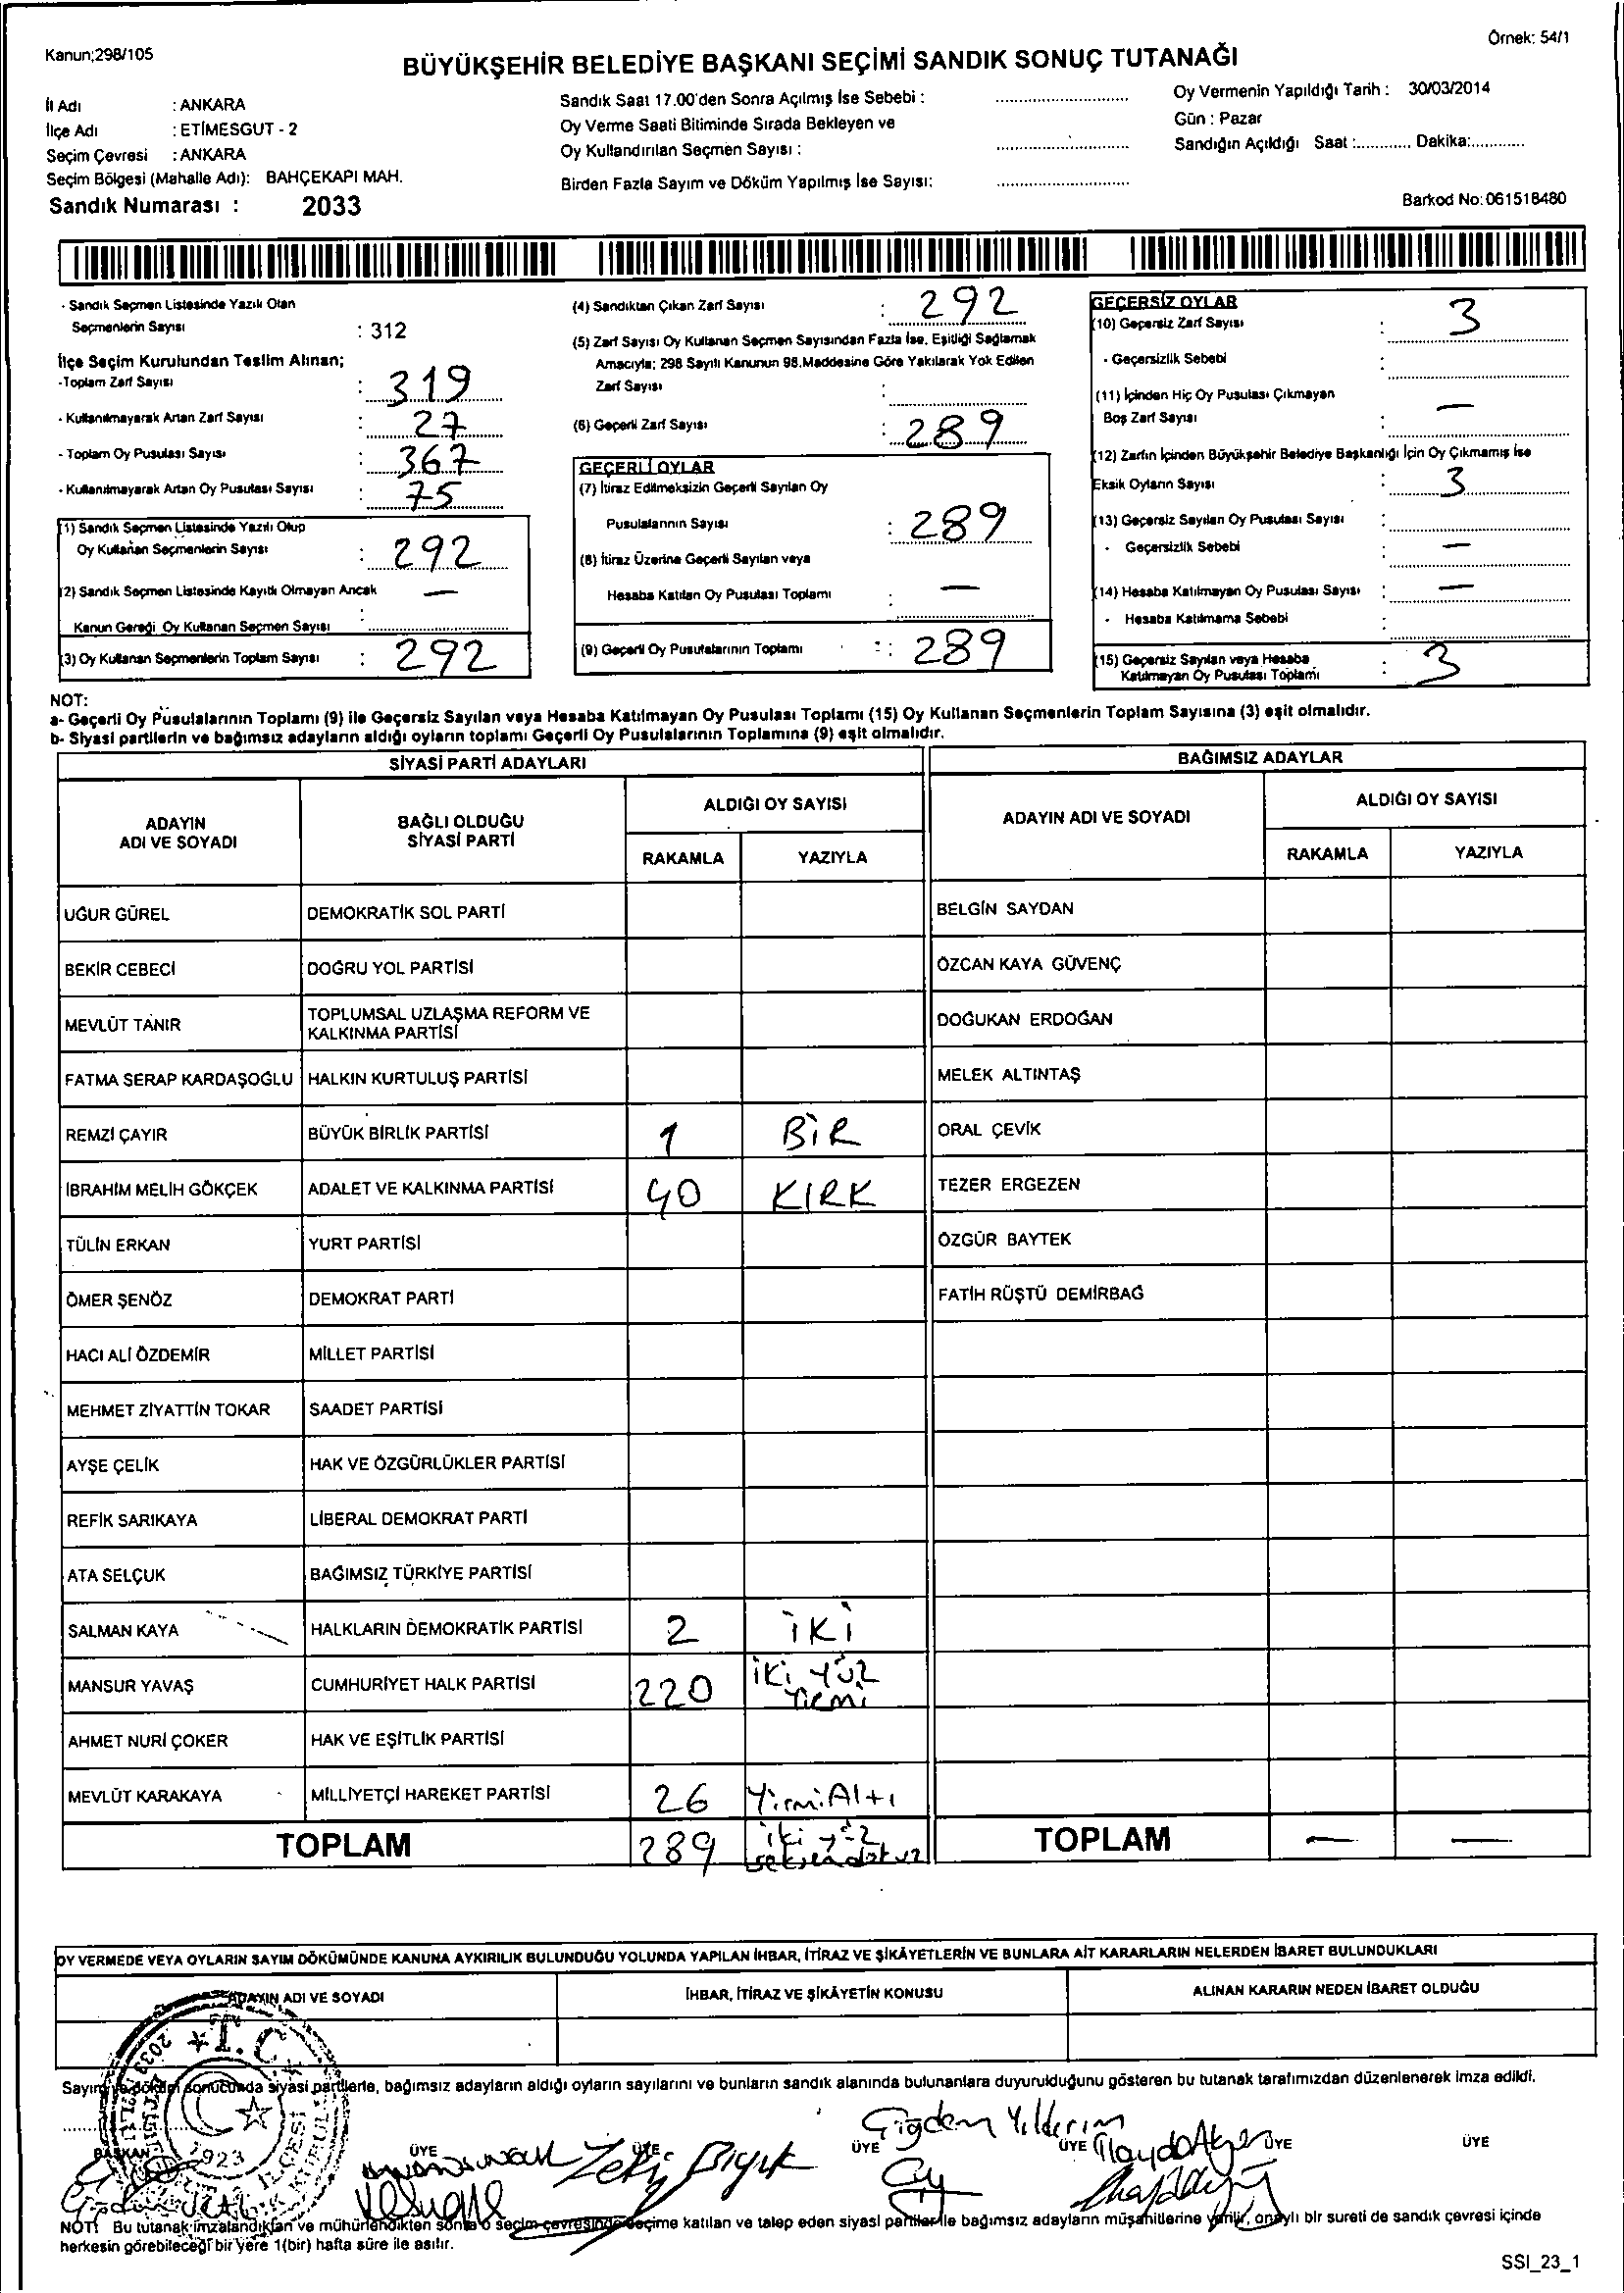 Kanun;298/105
Örnek: 54/1
BÜYÜKŞEHİR BELEDİYE BAŞKANI SEÇİMİ SANDIK SONUÇ TUTANAĞI
İl Adı : ANKARA
İlçe Adı : ETİMESGUT - 2
Seçim Çevresi : ANKARA
Seçim Bölgesi (Mahalle Adı): BAHÇEKAPI MAH.
Sandık Numarası : 2033
Sandık Saat 17.00'den Sonra Açılmış İse Sebebi :
Oy Verme Saati Bitiminde Sırada Bekleyen ve
Oy Kullandırılan Seçmen Sayısı :
Birden Fazla Sayım ve Döküm Yapılmış İse Sayısı:
Oy Vermenin Yapıldığı Tarih : 30/03/2014
Gün : Pazar
Sandığın Açıldığı Saat :............ Dakika:............
Barkod No:061518480
- Sandık Seçmen Listesinde Yazılı Olan
Seçmenlerin Sayısı : 312
İlçe Seçim Kurulundan Teslim Alınan;
-Toplam Zarf Sayısı : 319
- Kullanılmayarak Artan Zarf Sayısı : 27
- Toplam Oy Pusulası Sayısı : 367
- Kullanılmayarak Artan Oy Pusulası Sayısı : 75
(1) Sandık Seçmen Listesinde Yazılı Olup
Oy Kullanan Seçmenlerin Sayısı : 292
(2) Sandık Seçmen Listesinde Kayıtlı Olmayan Ancak —
Kanun Gereği Oy Kullanan Seçmen Sayısı :
(3) Oy Kullanan Seçmenlerin Toplam Sayısı : 292
(4) Sandıktan Çıkan Zarf Sayısı : 292
(5) Zarf Sayısı Oy Kullanan Seçmen Sayısından Fazla İse, Eşitliği Sağlamak
Amacıyla; 298 Sayılı Kanunun 98.Maddesine Göre Yakılarak Yok Edilen
Zarf Sayısı :
(6) Geçerli Zarf Sayısı : 289
GEÇERLİ OYLAR
(7) İtiraz Edilmeksizin Geçerli Sayılan Oy
Pusulalarının Sayısı : 289
(8) İtiraz Üzerine Geçerli Sayılan veya
Hesaba Katılan Oy Pusulası Toplamı : —
(9) Geçerli Oy Pusulalarının Toplamı : 289
GEÇERSİZ OYLAR
(10) Geçersiz Zarf Sayısı : 3
- Geçersizlik Sebebi :
(11) İçinden Hiç Oy Pusulası Çıkmayan
Boş Zarf Sayısı : —
(12) Zarfın İçinden Büyükşehir Belediye Başkanlığı İçin Oy Çıkmamış İse
Eksik Oyların Sayısı : 3
(13) Geçersiz Sayılan Oy Pusulası Sayısı :
- Geçersizlik Sebebi : —
(14) Hesaba Katılmayan Oy Pusulası Sayısı : —
- Hesaba Katılmama Sebebi :
(15) Geçersiz Sayılan veya Hesaba
Katılmayan Oy Pusulası Toplamı : 3
NOT:
a- Geçerli Oy Pusulalarının Toplamı (9) ile Geçersiz Sayılan veya Hesaba Katılmayan Oy Pusulası Toplamı (15) Oy Kullanan Seçmenlerin Toplam Sayısına (3) eşit olmalıdır.
b- Siyasi partilerin ve bağımsız adayların aldığı oyların toplamı Geçerli Oy Pusulalarının Toplamına (9) eşit olmalıdır.
SİYASİ PARTİ ADAYLARI
BAĞIMSIZ ADAYLAR
ADAYIN
ADI VE SOYADI
BAĞLI OLDUĞU
SİYASİ PARTİ
ALDIĞI OY SAYISI
RAKAMLA YAZIYLA
ADAYIN ADI VE SOYADI
ALDIĞI OY SAYISI
RAKAMLA YAZIYLA
UĞUR GÜREL DEMOKRATİK SOL PARTİ BELGİN SAYDAN
BEKİR CEBECİ DOĞRU YOL PARTİSİ ÖZCAN KAYA GÜVENÇ
MEVLÜT TANIR TOPLUMSAL UZLAŞMA REFORM VE
KALKINMA PARTİSİ DOĞUKAN ERDOĞAN
FATMA SERAP KARDAŞOĞLU HALKIN KURTULUŞ PARTİSİ MELEK ALTINTAŞ
REMZİ ÇAYIR BÜYÜK BİRLİK PARTİSİ 1 BİR ORAL ÇEVİK
İBRAHİM MELİH GÖKÇEK ADALET VE KALKINMA PARTİSİ 40 KIRK TEZER ERGEZEN
TÜLİN ERKAN YURT PARTİSİ ÖZGÜR BAYTEK
ÖMER ŞENÖZ DEMOKRAT PARTİ FATİH RÜŞTÜ DEMİRBAĞ
HACI ALİ ÖZDEMİR MİLLET PARTİSİ
MEHMET ZİYATTİN TOKAR SAADET PARTİSİ
AYŞE ÇELİK HAK VE ÖZGÜRLÜKLER PARTİSİ
REFİK SARIKAYA LİBERAL DEMOKRAT PARTİ
ATA SELÇUK BAĞIMSIZ TÜRKİYE PARTİSİ
SALMAN KAYA HALKLARIN DEMOKRATİK PARTİSİ 2 İKİ
MANSUR YAVAŞ CUMHURİYET HALK PARTİSİ 220 İKİ YÜZ
YİRMİ
AHMET NURİ ÇOKER HAK VE EŞİTLİK PARTİSİ
MEVLÜT KARAKAYA MİLLİYETÇİ HAREKET PARTİSİ 26 YirmiAltı
TOPLAM 289 iki yüz
seksendokuz TOPLAM — —
OY VERMEDE VEYA OYLARIN SAYIM DÖKÜMÜNDE KANUNA AYKIRILIK BULUNDUĞU YOLUNDA YAPILAN İHBAR, İTİRAZ VE ŞİKÂYETLERİN VE BUNLARA AİT KARARLARIN NELERDEN İBARET BULUNDUKLARI
ADAYIN ADI VE SOYADI İHBAR, İTİRAZ VE ŞİKÂYETİN KONUSU ALINAN KARARIN NEDEN İBARET OLDUĞU
T.C
2033
1923
Sayım ve döküm sonucunda siyasi partilerle, bağımsız adayların aldığı oyların sayılarını ve bunların sandık alanında bulunanlara duyurulduğunu gösteren bu tutanak tarafımızdan düzenlenerek imza edildi.
Çiğdem Yıldırım
BAŞKAN ÜYE ÜYE ÜYE ÜYE ÜYE ÜYE
Zeki Bıyık
NOT: Bu tutanak imzalandıktan ve mühürlendikten sonra o seçim çevresinde seçime katılan ve talep eden siyasi partiler ile bağımsız adayların müşahitlerine verilir, onaylı bir sureti de sandık çevresi içinde
herkesin görebileceği bir yere 1(bir) hafta süre ile asılır.
SSI_23_1